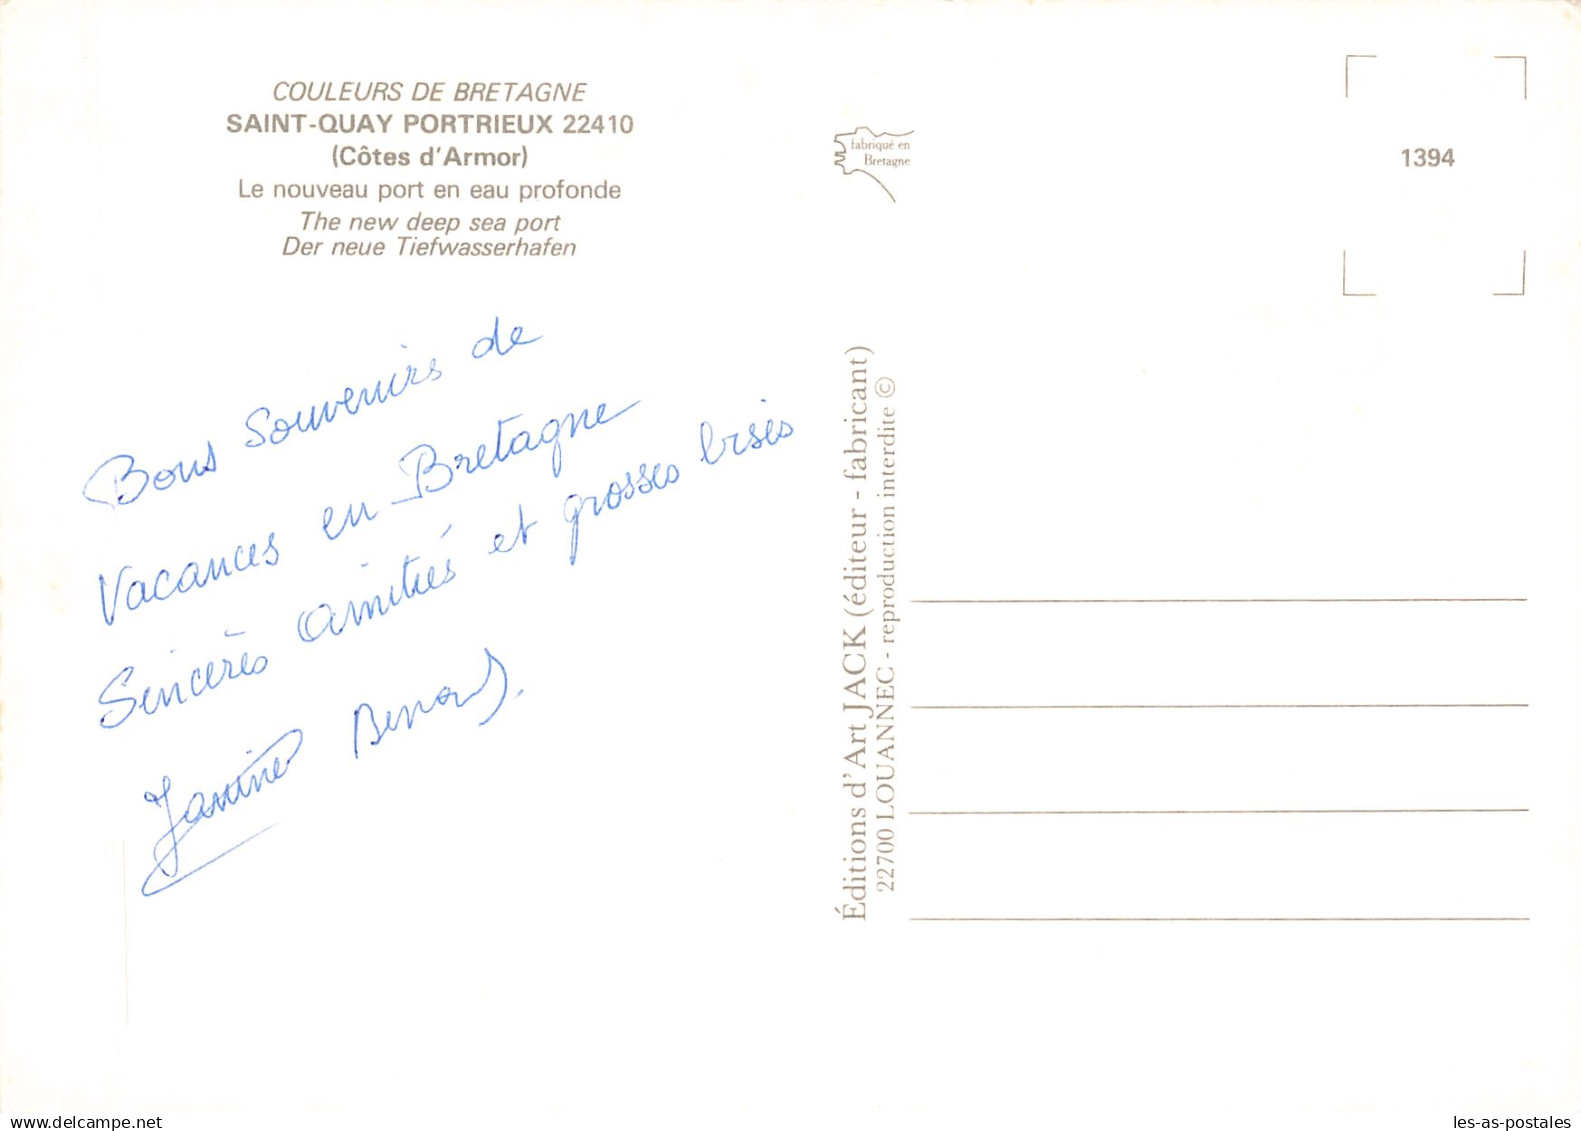 COULEURS DE BRETAGNE
SAINT-QUAY PORTRIEUX 22410
(Côtes d'Armor)
Le nouveau port en eau profonde
The new deep sea port
Der neue Tiefwasserhafen
fabriqué en
Bretagne
1394
Bons Souvenirs de
Vacances en Bretagne
Sincères amitiés et grosses bises
Janine
Éditions d'Art JACK (éditeur - fabricant)
22700 LOUANNEC - reproduction interdite ©
delcampe.net
les-as-postales